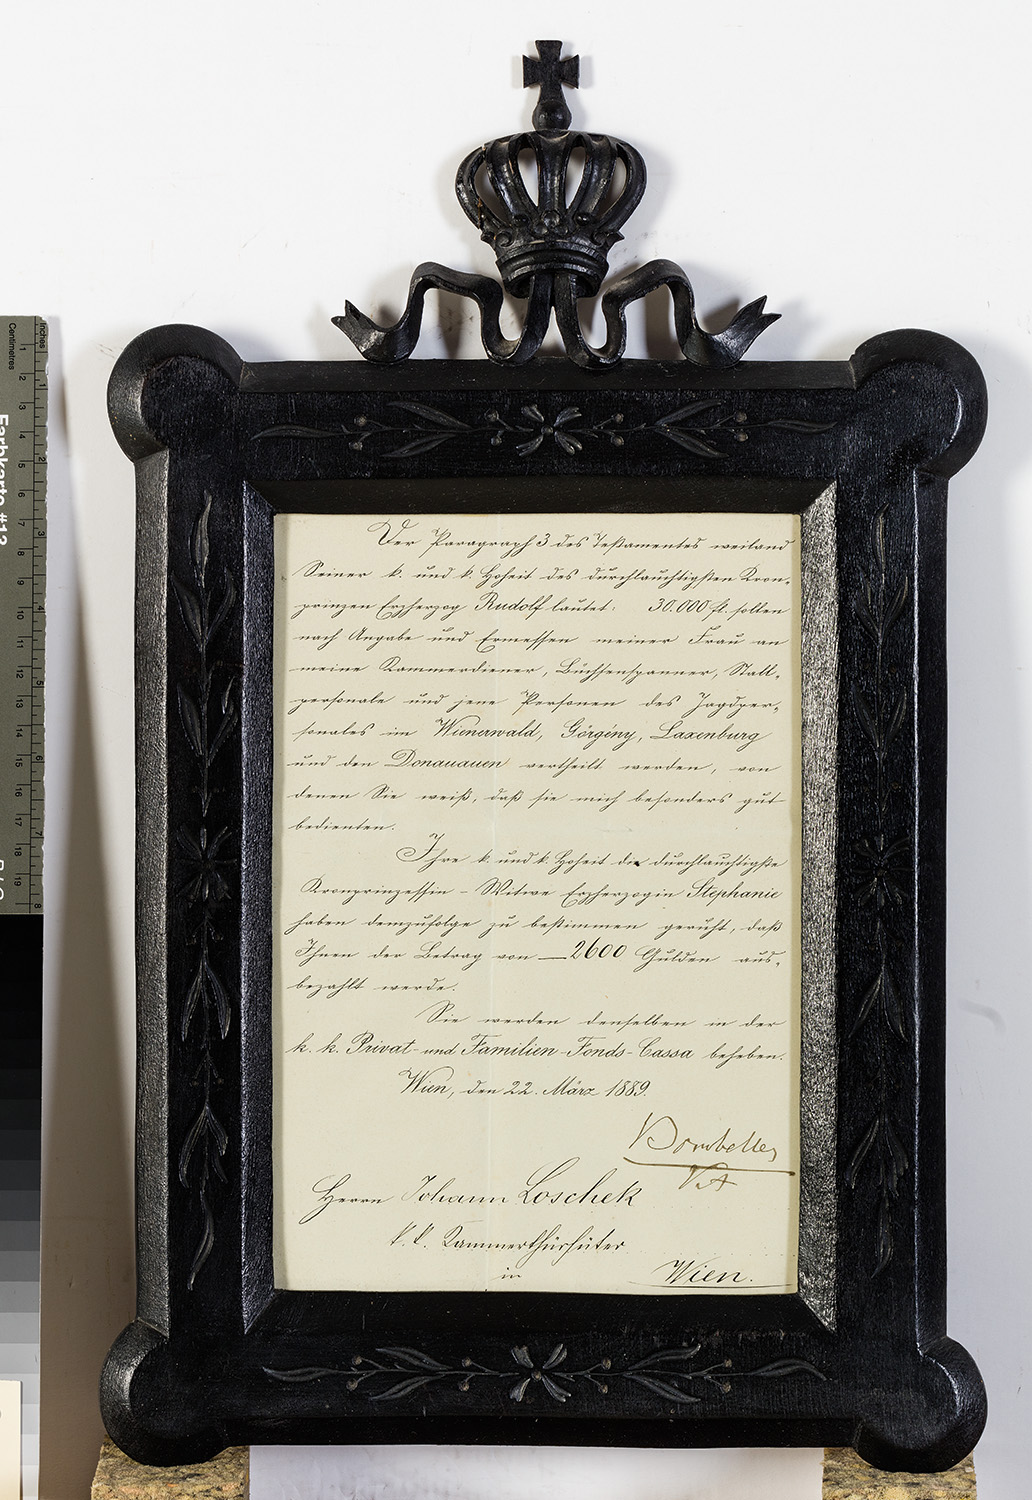 Inches
Centimetres
Farbkarte #13
1 2 3 4 5 6 7 8 9 10 11 12 13 14 15 16 17 18 19
1 2 3 4 5 6 7 8
Der Paragraph 3 des Testamentes weiland
Seiner k. und k. Hoheit des durchlauchtigsten Kron-
prinzen Erzherzog Rudolf lautet: 30.000 fl. sollen
nach Angabe und Ermessen meiner Frau an
meine Kammerdiener, Büchsenspanner, Stall-
personale und jene Personen des Jagdper-
sonales im Wienerwald, Görgény, Laxenburg
und den Donauauen vertheilt werden, von
denen Sie weiß, daß sie mich besonders gut
bedienten.
Ihre k. und k. Hoheit die durchlauchtigste
Kronprinzessin-Witwe Erzherzogin Stephanie
haben demzufolge zu bestimmen geruht, daß
Ihnen der Betrag von — 2600 Gulden aus-
bezahlt werde.
Sie werden denselben in der
k. k. Privat- und Familien-Fonds-Cassa beheben.
Wien, den 22. März 1889.
Bombelles
VA
Herrn Johann Loschek
k. k. Kammerthürhüter
in
Wien.